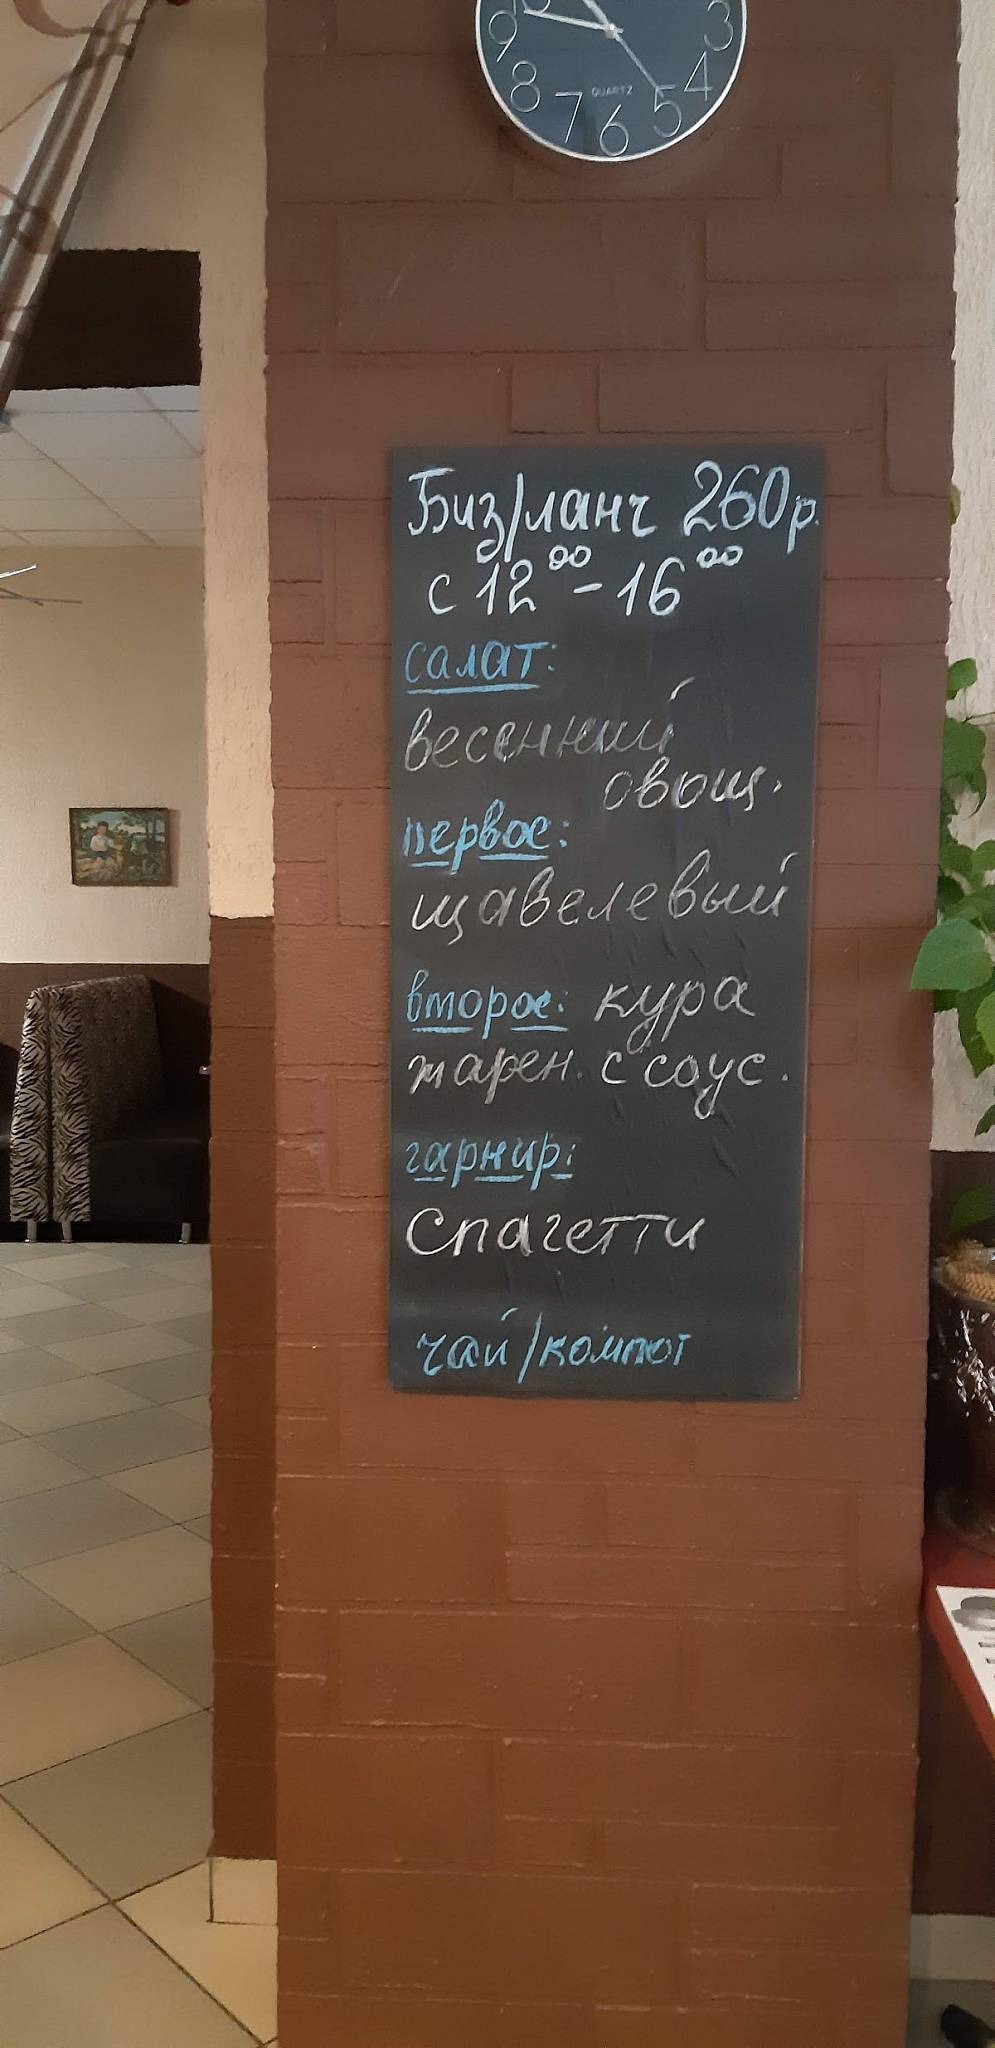 10
9
3
8
4
QUARTZ
7
5
6
Биз/ланч 260р.
с 12⁰⁰ - 16⁰⁰
салат:
весенний
овощ.
первое:
щавелевый
второе: кура
жарен. с соус.
гарнир:
Спагетти
чай/компот